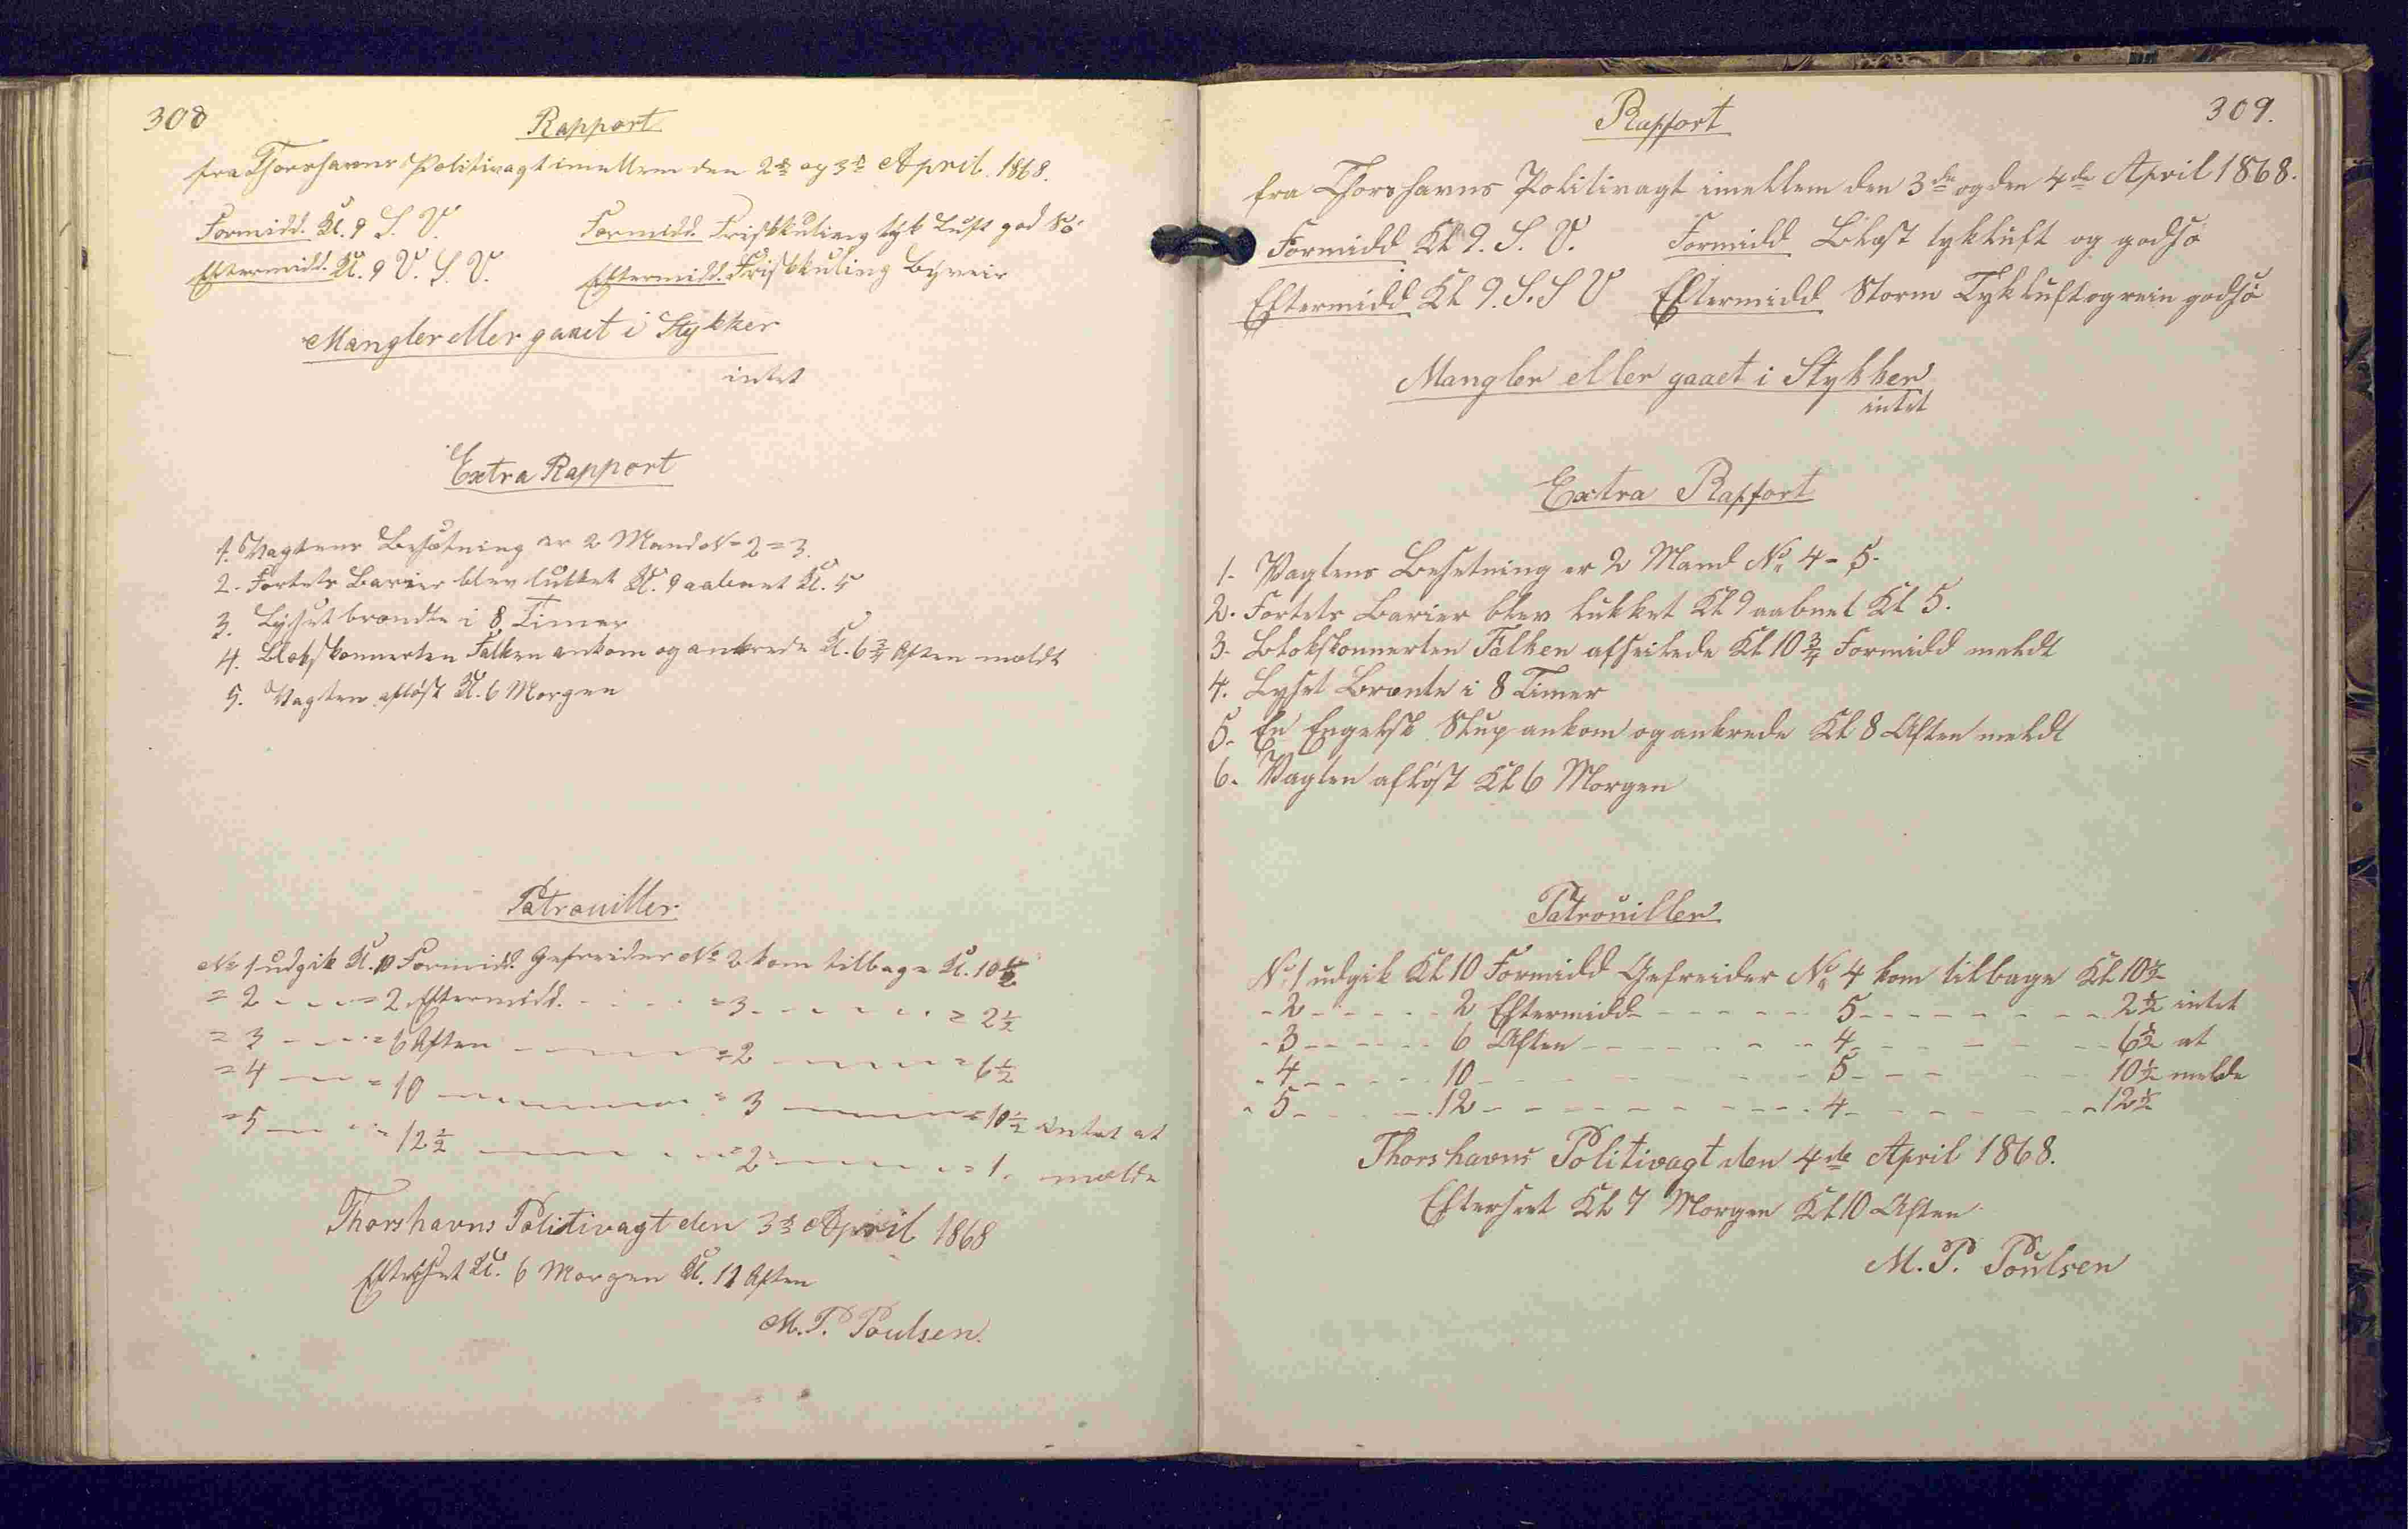 308
Rapport
fra Thorshavns Politivagt imellem den 2de og 3de April. 1868.
Formidd. Kl. 9 S. V. Formidd. Friskkuling tyk Luft god Sø
Eftermidd. Kl. 9 V. S. V. Eftermidd. Friskkuling Byveir
Mangler eller gaaet i Stykker
intet
Extra Rapport
1. Vagtens Besætning er 2 Mand No 2 = 3.
2. Fortets Barier blev lukket Kl. 9 aabnet Kl. 5
3. Lyset brændte i 8 Timer
4. Blokskonnerten Falken ankom og ankrede Kl. 6 3/4 Aften meldt
5. Vagten afløst Kl. 6 Morgen
Patrouiller
No 1 udgik Kl. 10 Formidd. Gefreider No 2 kom tilbage Kl. 10 1/2
= 2 - - - = 2 Eftermidd. - - - - = 3 - - - - - = 2 1/2
= 3 - - - = 6 Aften - - - - = 2 - - - - = 6 1/2
= 4 - - = 10 - - - - - = 3 - - - - = 10 1/2 intet at
= 5 - - - = 12 1/2 - - - - - = 2 - - - - = 1. melde
Thorshavns Politivagt den 3de April 1868
Efterset Kl. 6 Morgen Kl. 11 Aften
M. P. Poulsen.
309.
Rapport
fra Thorshavns Politivagt imellem den 3die og den 4de April 1868.
Formidd Kl 9. S. V. Formidd Blæst tykluft og godsø
Eftermidd Kl 9. S. S V Eftermidd Storm Tykluft og rein godsø
Mangler eller gaaet i Stykker
intet
Extra Rapport
1- Vagtens Besetning er 2 Mand No 4 - 5-
2. Fortets Barier blev lukket Kl 9 aabnet Kl 5.
3- Blokskonnerten Falken afseilede Kl 10 3/4 Formidd meldt
4. Lyset Brænte i 8 Timer
5- En Engelsk Slup ankom og ankrede Kl 8 Aften meldt
6- Vagten afløst Kl 6 Morgen
Patrouiller
No 1 udgik Kl 10 Formidd Gefreider No 4 kom tilbage Kl 10 1/2
- 2 - - - - - 2 Eftermidd - - - - - - 5 - - - - - - - 2 1/2 intet
- 3 - - - - - 6 Aften - - - - - - - 4 - - - - - - 6 1/2 at
- 4 - - - - - 10 - - - - - - - 5 - - - - - 10 1/2 melde
- 5 - - - - - 12 - - - - - - - - 4 - - - - - - 12 1/2
Thorshavns Politivagt den 4de April 1868.
Efterseet Kl 7 Morgen Kl 10 Aften
M. P. Poulsen